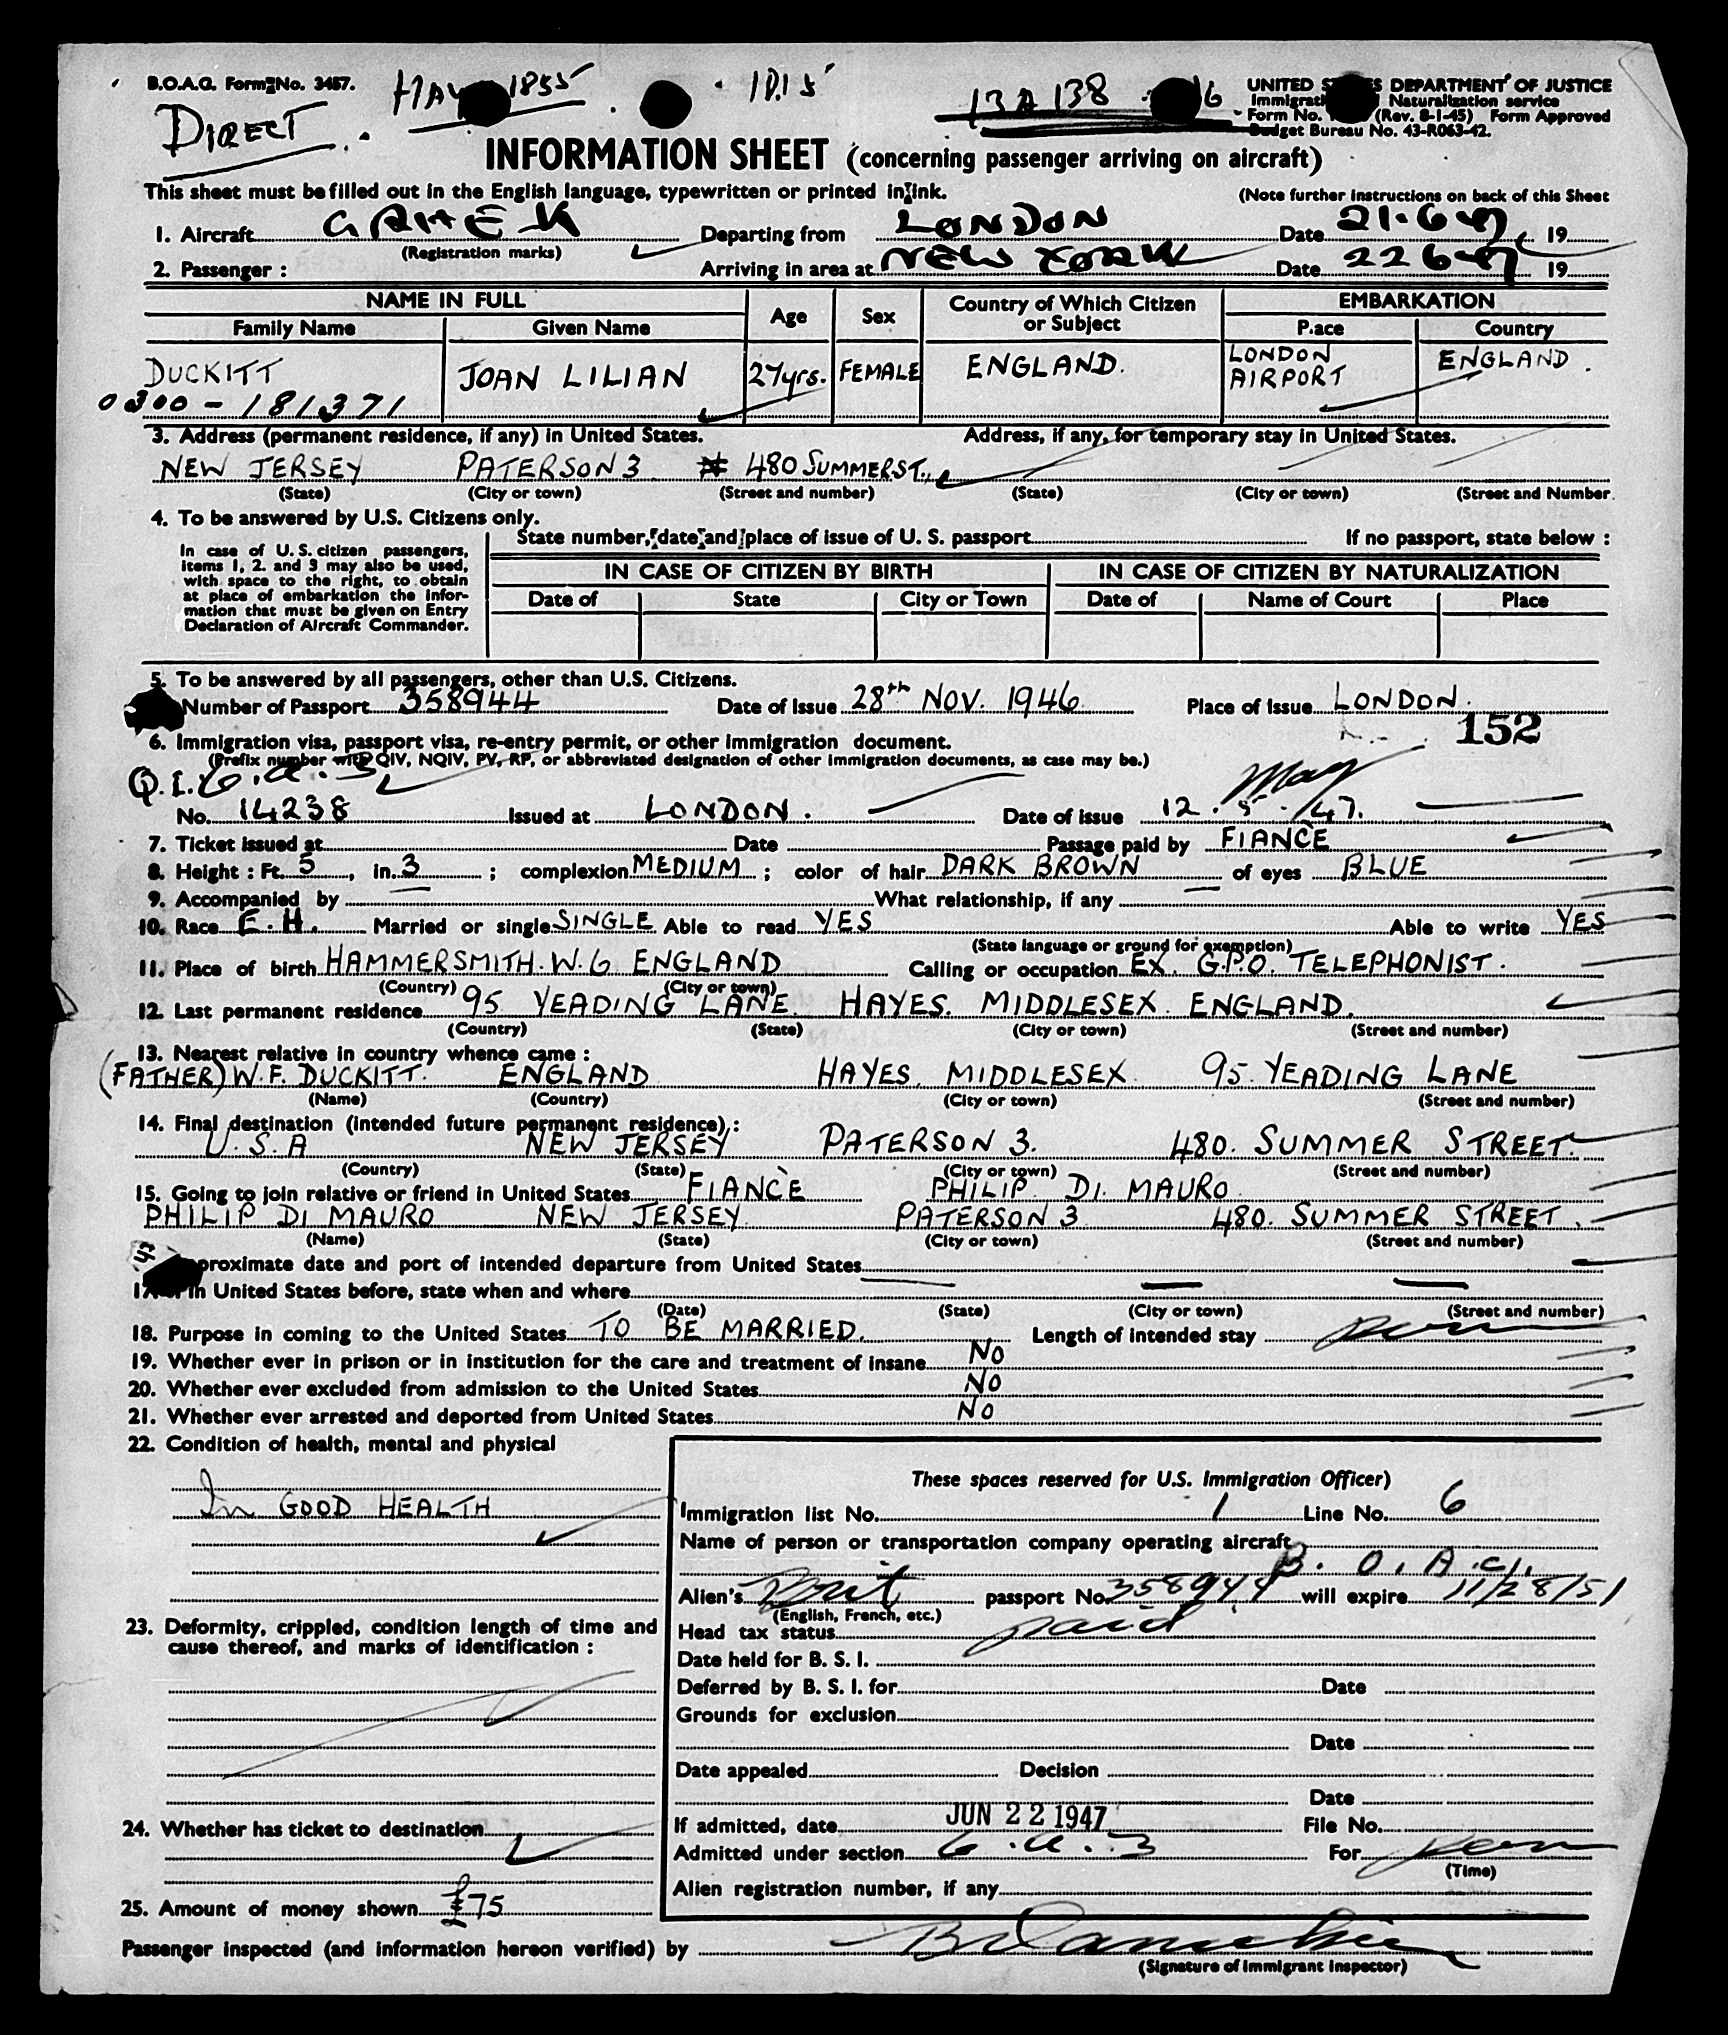 B.O.A.C. Form No. 3457.
DIRECT
1855
1D15
13A 138
UNITED S S DEPARTMENT OF JUSTICE
Immigrati Naturalization service
Form No. (Rev. 8-1-45) Form Approved
Budget Bureau No. 43-R063-42.
INFORMATION SHEET (concerning passenger arriving on aircraft)
This sheet must be filled out in the English language, typewritten or printed in ink.
(Note further instructions on back of this Sheet
1. Aircraft GAHEK Departing from LONDON Date 21.6.47 19
(Registration marks)
2. Passenger : Arriving in area at NEW YORK Date 22 6 47 19
NAME IN FULL Age Sex Country of Which Citizen or Subject EMBARKATION
Family Name Given Name P.ace Country
DUCKITT JOAN LILIAN 27yrs. FEMALE ENGLAND. LONDON AIRPORT ENGLAND.
0300-181371
3. Address (permanent residence, if any) in United States. Address, if any, for temporary stay in United States.
NEW JERSEY PATERSON 3 480 SUMMER ST.,
(State) (City or town) (Street and number) (State) (City or town) (Street and Number
4. To be answered by U.S. Citizens only.
State number, date and place of issue of U. S. passport If no passport, state below :
In case of U. S. citizen passengers,
items 1, 2. and 3 may also be used,
with space to the right, to obtain
at place of embarkation the infor-
mation that must be given on Entry
Declaration of Aircraft Commander.
IN CASE OF CITIZEN BY BIRTH IN CASE OF CITIZEN BY NATURALIZATION
Date of State City or Town Date of Name of Court Place
5. To be answered by all passengers, other than U.S. Citizens.
Number of Passport 358944 Date of Issue 28th NOV. 1946 Place of Issue LONDON.
152
6. Immigration visa, passport visa, re-entry permit, or other immigration document.
(Prefix number with QIV, NQIV, PV, RP, or abbreviated designation of other immigration documents, as case may be.)
Q.I. 6.a.3 May
No. 14238 Issued at LONDON. Date of issue 12.5./47.
7. Ticket issued at Date Passage paid by FIANCÈ
8. Height : Ft. 5, in. 3 ; complexion MEDIUM ; color of hair DARK BROWN of eyes BLUE
9. Accompanied by What relationship, if any
10. Race E.H. Married or single SINGLE Able to read YES Able to write YES
(State language or ground for exemption)
11. Place of birth HAMMERSMITH. W.6 ENGLAND Calling or occupation EX. G.P.O. TELEPHONIST.
(Country) (City or town)
12. Last permanent residence 95 YEADING LANE. HAYES. MIDDLESEX. ENGLAND.
(Country) (State) (City or town) (Street and number)
13. Nearest relative in country whence came :
(FATHER) W.F. DUCKITT. ENGLAND HAYES, MIDDLESEX 95. YEADING LANE
(Name) (Country) (City or town) (Street and number)
14. Final destination (intended future permanent residence) :
U.S.A NEW JERSEY PATERSON 3. 480. SUMMER STREET.
(Country) (State) (City or town) (Street and number)
15. Going to join relative or friend in United States FIANCÈ PHILIP DI MAURO
PHILIP DI MAURO NEW JERSEY PATERSON 3 480. SUMMER STREET.
(Name) (State) (City or town) (Street and number)
proximate date and port of intended departure from United States
17. in United States before, state when and where
(Date) (State) (City or town) (Street and number)
18. Purpose in coming to the United States TO BE MARRIED. Length of intended stay perm
19. Whether ever in prison or in institution for the care and treatment of insane NO
20. Whether ever excluded from admission to the United States NO
21. Whether ever arrested and deported from United States NO
22. Condition of health, mental and physical
In GOOD HEALTH
23. Deformity, crippled, condition length of time and
cause thereof, and marks of identification :
24. Whether has ticket to destination
25. Amount of money shown £75
These spaces reserved for U.S. Immigration Officer)
Immigration list No. 1 Line No. 6
Name of person or transportation company operating aircraft
B.O.A.C.
Alien's Brit passport No. 358944 will expire 11/28/51
(English, French, etc.)
Head tax status paid
Date held for B. S. I.
Deferred by B. S. I. for Date
Grounds for exclusion
Date
Date appealed Decision
Date
If admitted, date JUN 22 1947 File No.
Admitted under section 6.a.3 For perm
(Time)
Alien registration number, if any
Passenger inspected (and information hereon verified) by
(Signature of Immigrant Inspector)